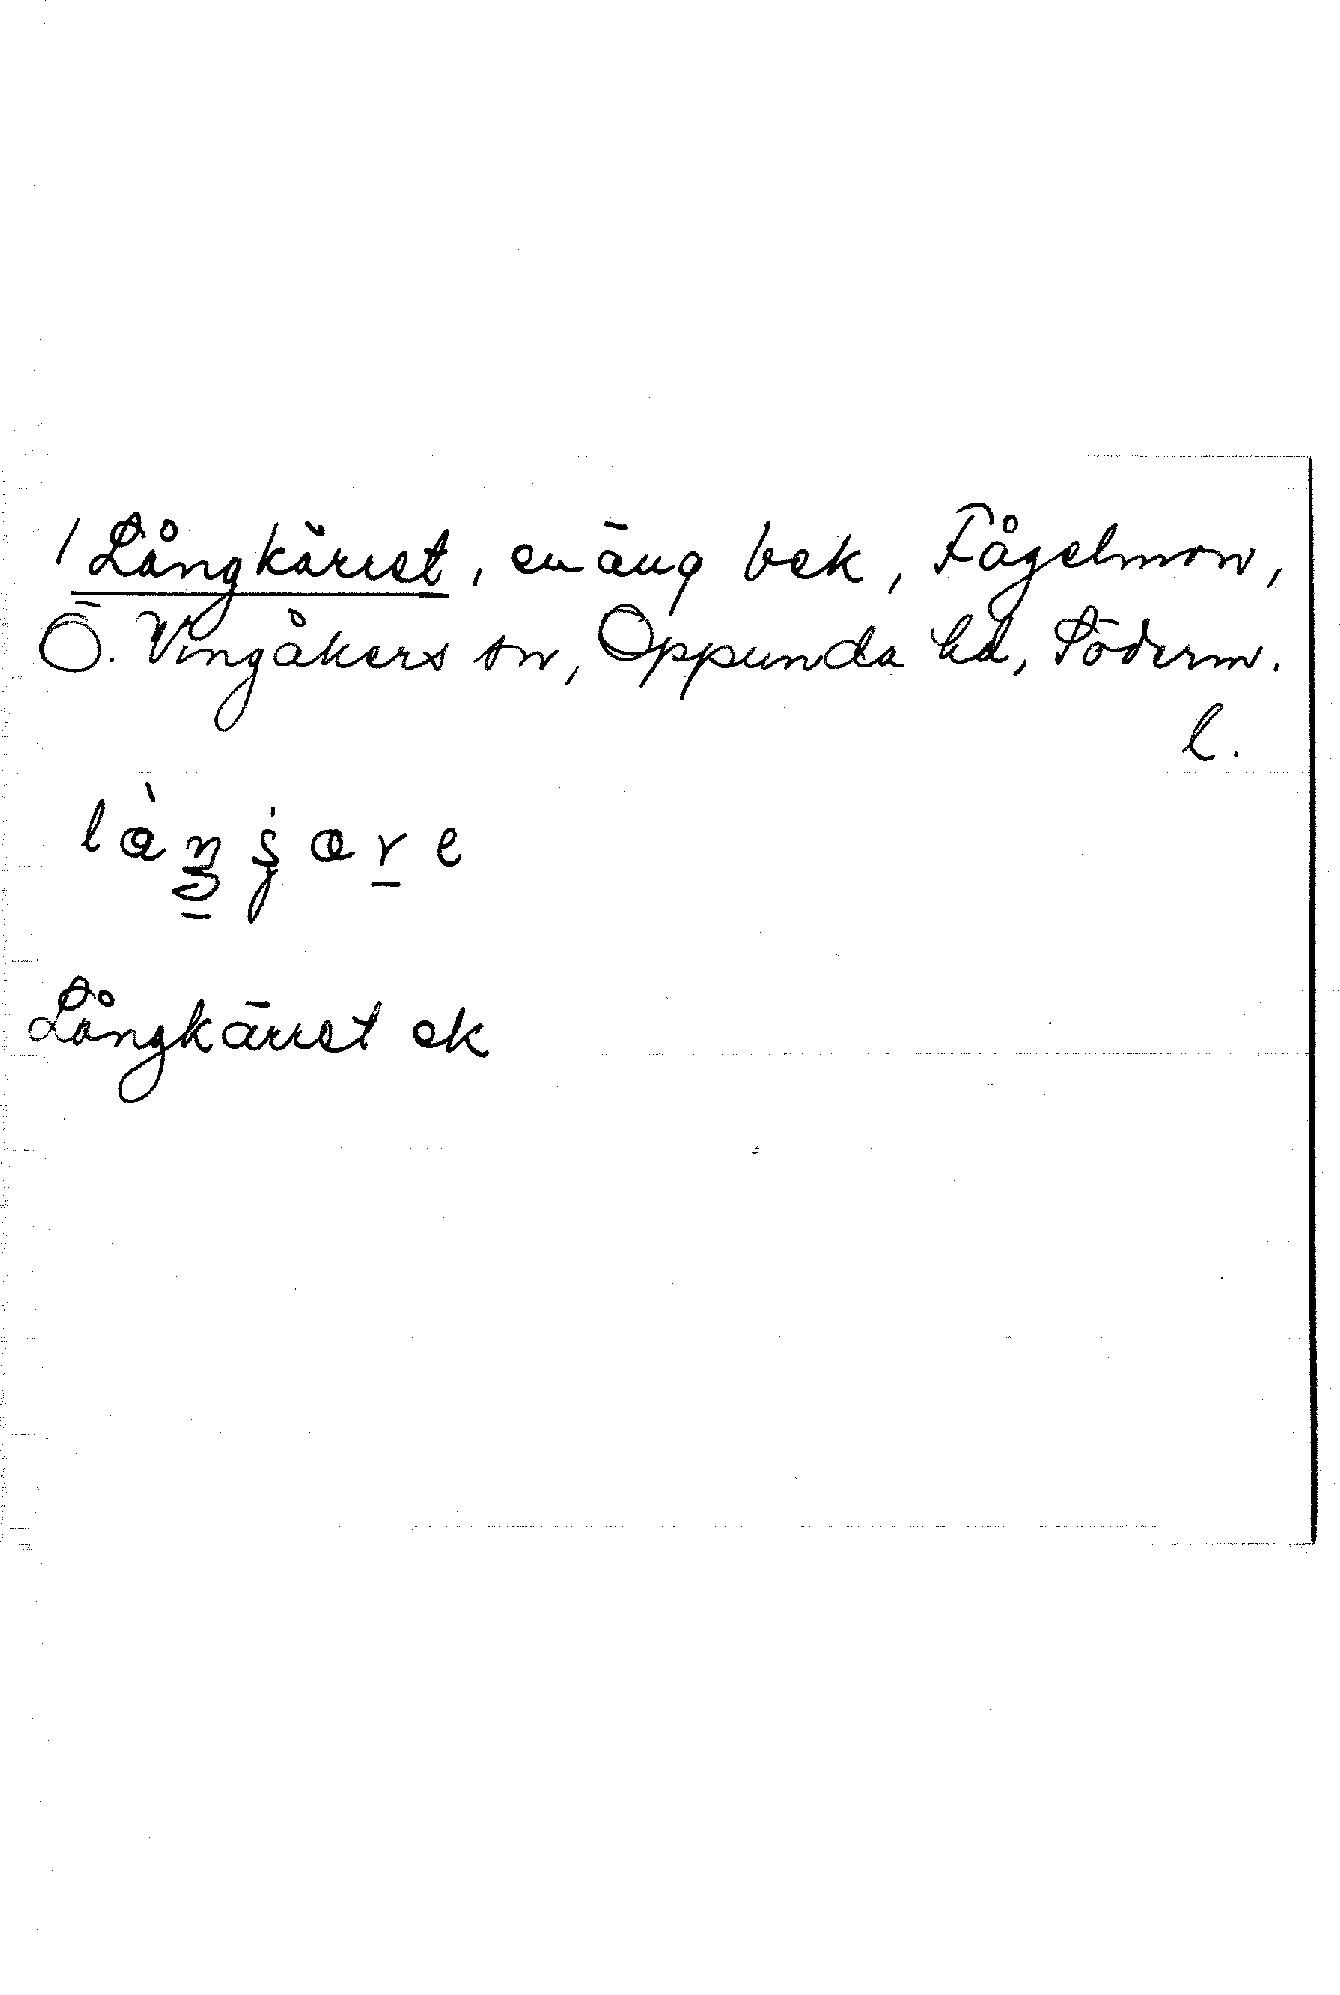 / Långkärret, en äng bek, Fågelmon,
Ö. Vingåkers sn, Oppunda hd, Söderm.
l.
Långkärret ek